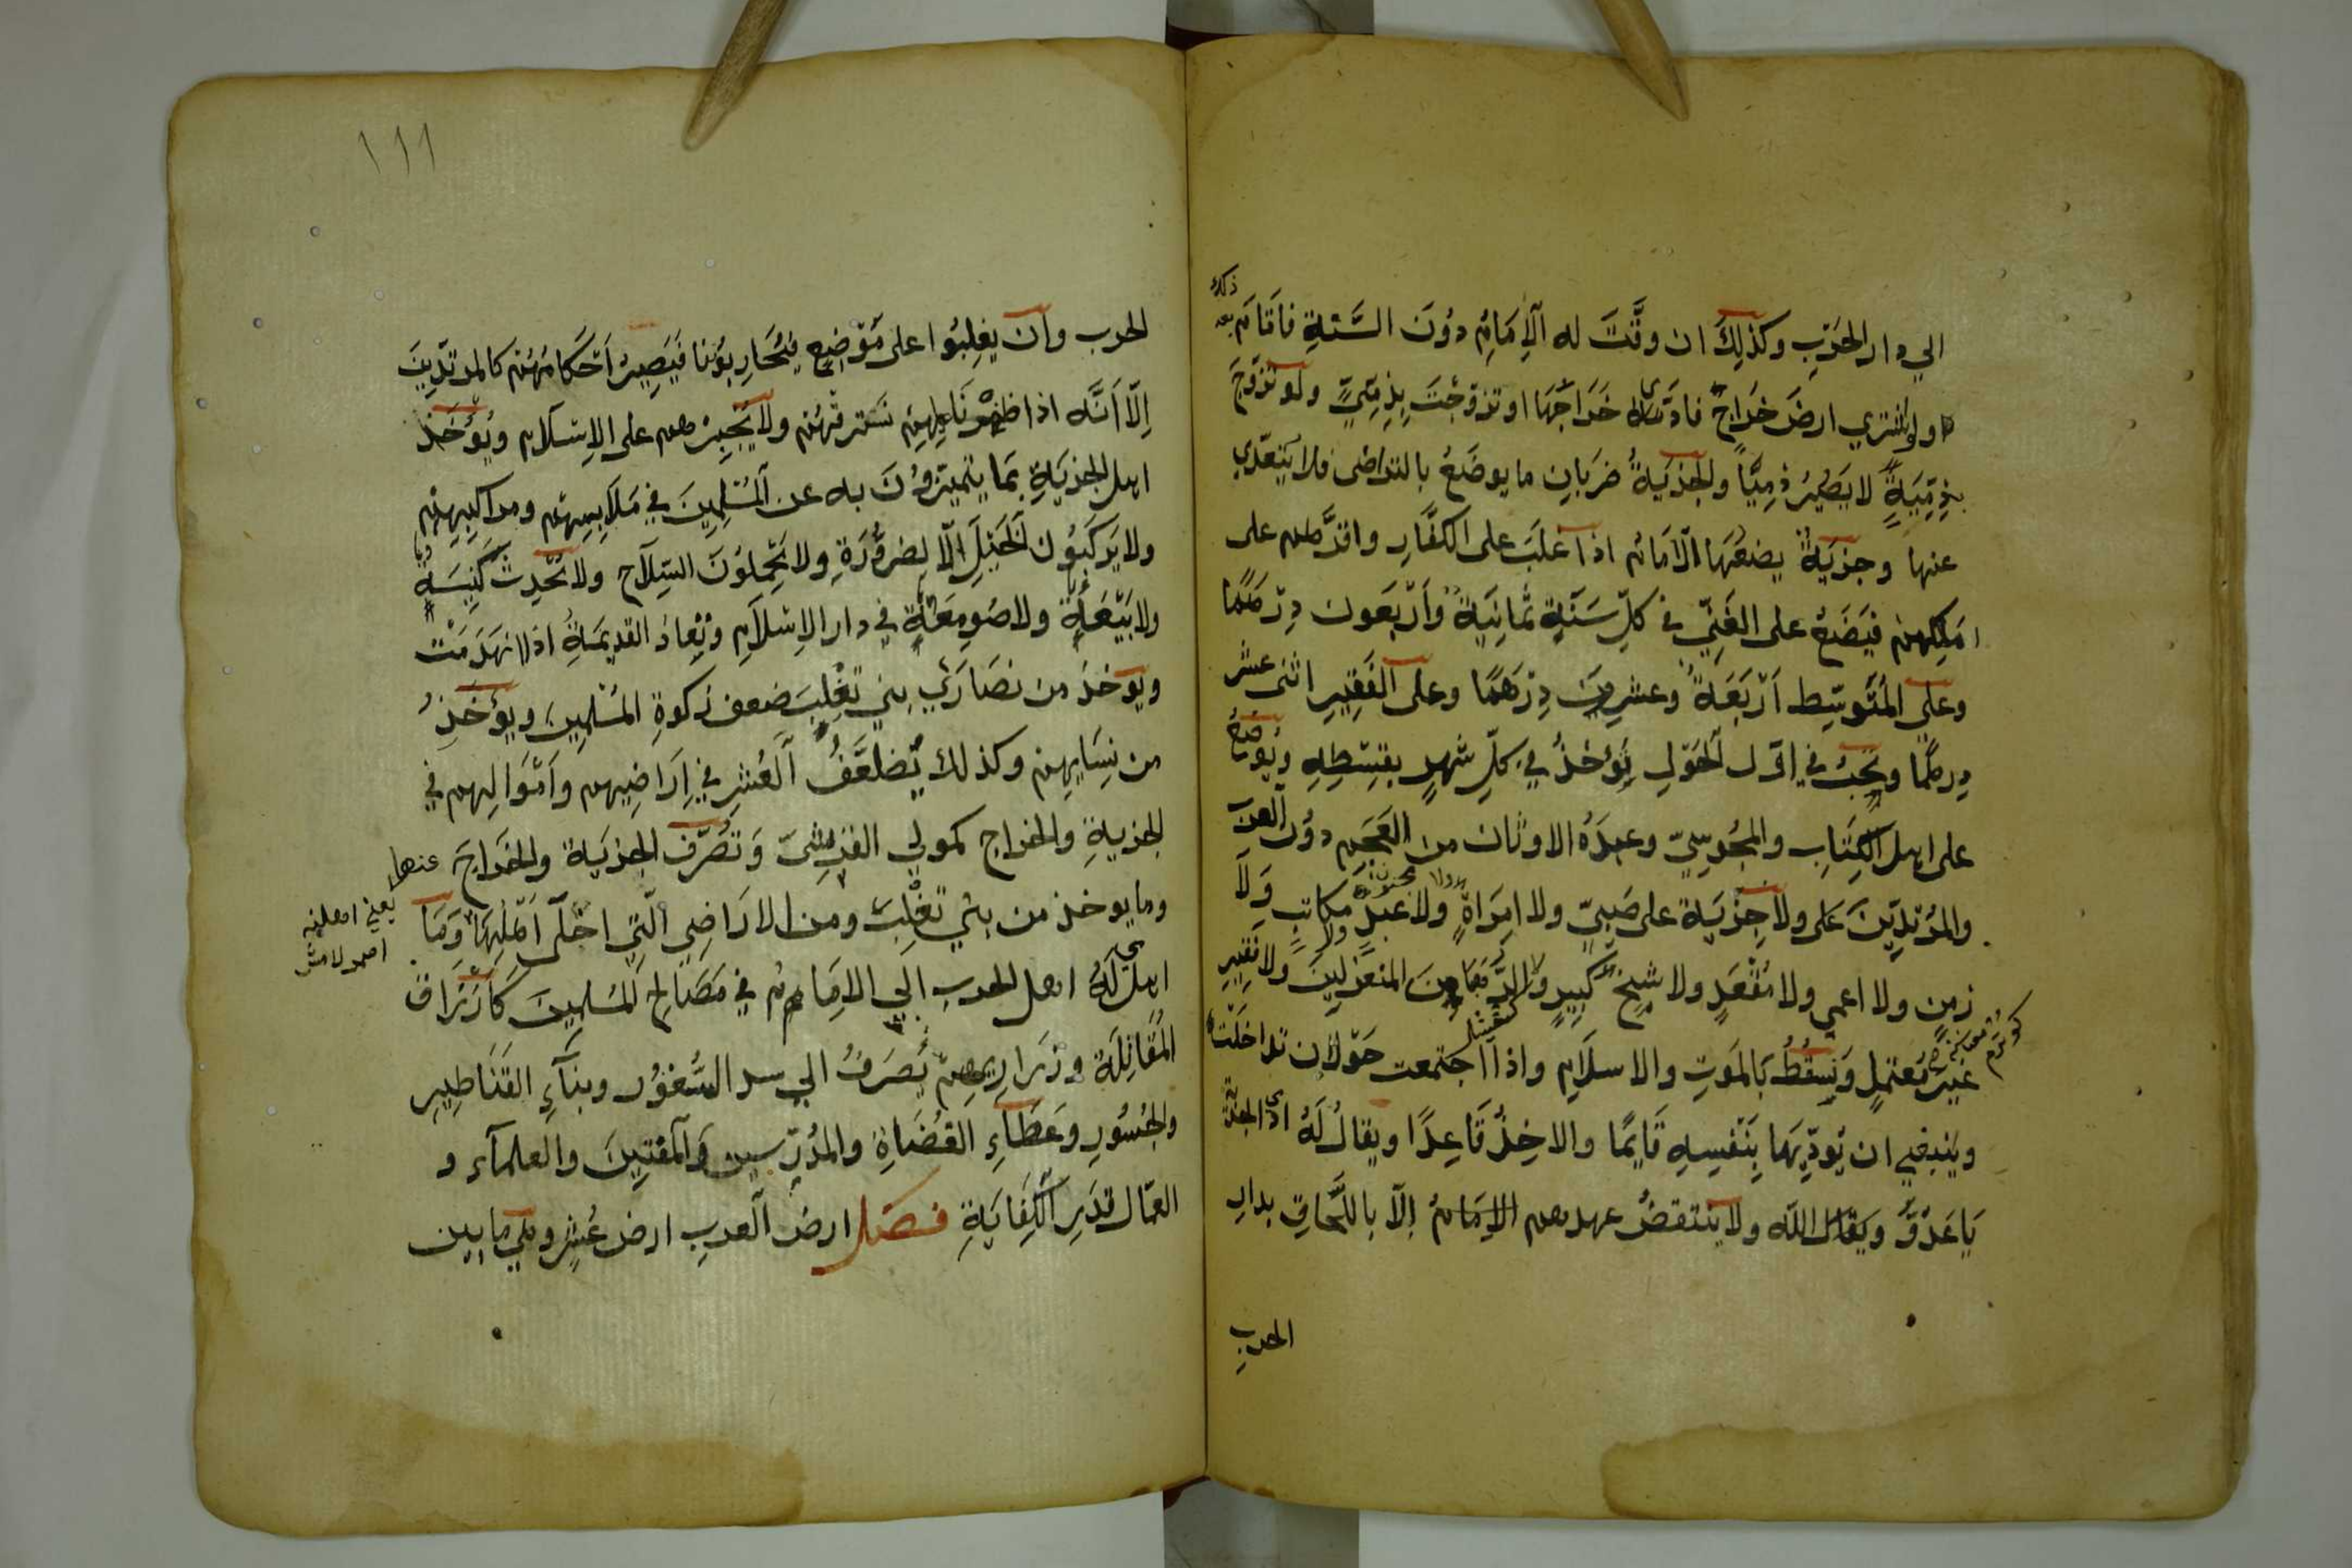 الي دار الحرب وكذلك ان وقت له الامام دون السنة فاقام
ذلك
بعد
ولو اشتري ارض خراج فادى خراجها او تزوجت بذمي ولو تزوج
بذمية لا يصير ذميا والجزية ضربان ما يوضع بالتراضى فلا يتعدي
عنها وجزية يضعها الامام اذا غلب على الكفار واقرهم على
املكهم فيضع على الغني في كل سنة ثمانية واربعون درهما
وعلى المتوسط اربعة وعشرين درهما وعلى الفقير اثنى عشر
درهما ويجب في اول الحول يؤخذ في كل شهر بقسطه ويوضع
على اهل الكتاب والمجوسي وعبدة الاوثان من العجم دون العرب
والمرتدين ولا جزية على صبي ولا امراة ولا عبد مكاتب ولا
زمن ولا اعمى ولا مقعد ولا شيخ كبير ولا الرهابين المنعزلين ولا فقير
غير معتمل وتسقط بالموت والاسلام واذا اجتمعت حولان تداخلت
وينبغي ان يؤديها بنفسه قايما والاخذ قاعدا ويقال له اد الجزية
يا عدو ويقال الله ولا ينتقض عهدهم الامام الا باللحاق بدار
الحرب
١١١
الحرب وان يغلبوا على موضع فيحاربوننا فيصير احكامهم كالمرتدين
الا انه اذا ظهرنا عليهم نسترقهم ولا يجبرهم على الاسلام ويؤخذ
اهل الجزية بما يتميزون به عن المسلمين في ملابسهم ومراكبهم
ولا يركبون الخيل الا لضرورة ولا يحملون السلاح ولا تحدث كنيسة
ولا بيعة ولا صومعة في دار الاسلام وتعاد القديمة اذا انهدمت
ويؤخذ من نصاري بني تغلب ضعف زكوة المسلمين ويؤخذ
من نسايهم وكذلك يضعف العشر في اراضيهم واموالهم في
الجزية والخراج كمولي القريشى وتصرف الجزية والخراج
وما يوخذ من بني تغلب ومن الاراضي التي اجلى اهلها عنها وما
يعني
اهداه اهل الحرب الي الامام في مصالح المسلمين كارزاق
المقاتلة وذراريهم يصرف الي سد الثغور وبناء القناطير
والجسور وعطاء القضاة والمدرسين والمفتين والعلماء و
العمال قدر الكفاية فصل ارض العرب ارض عشر وهي ما بين